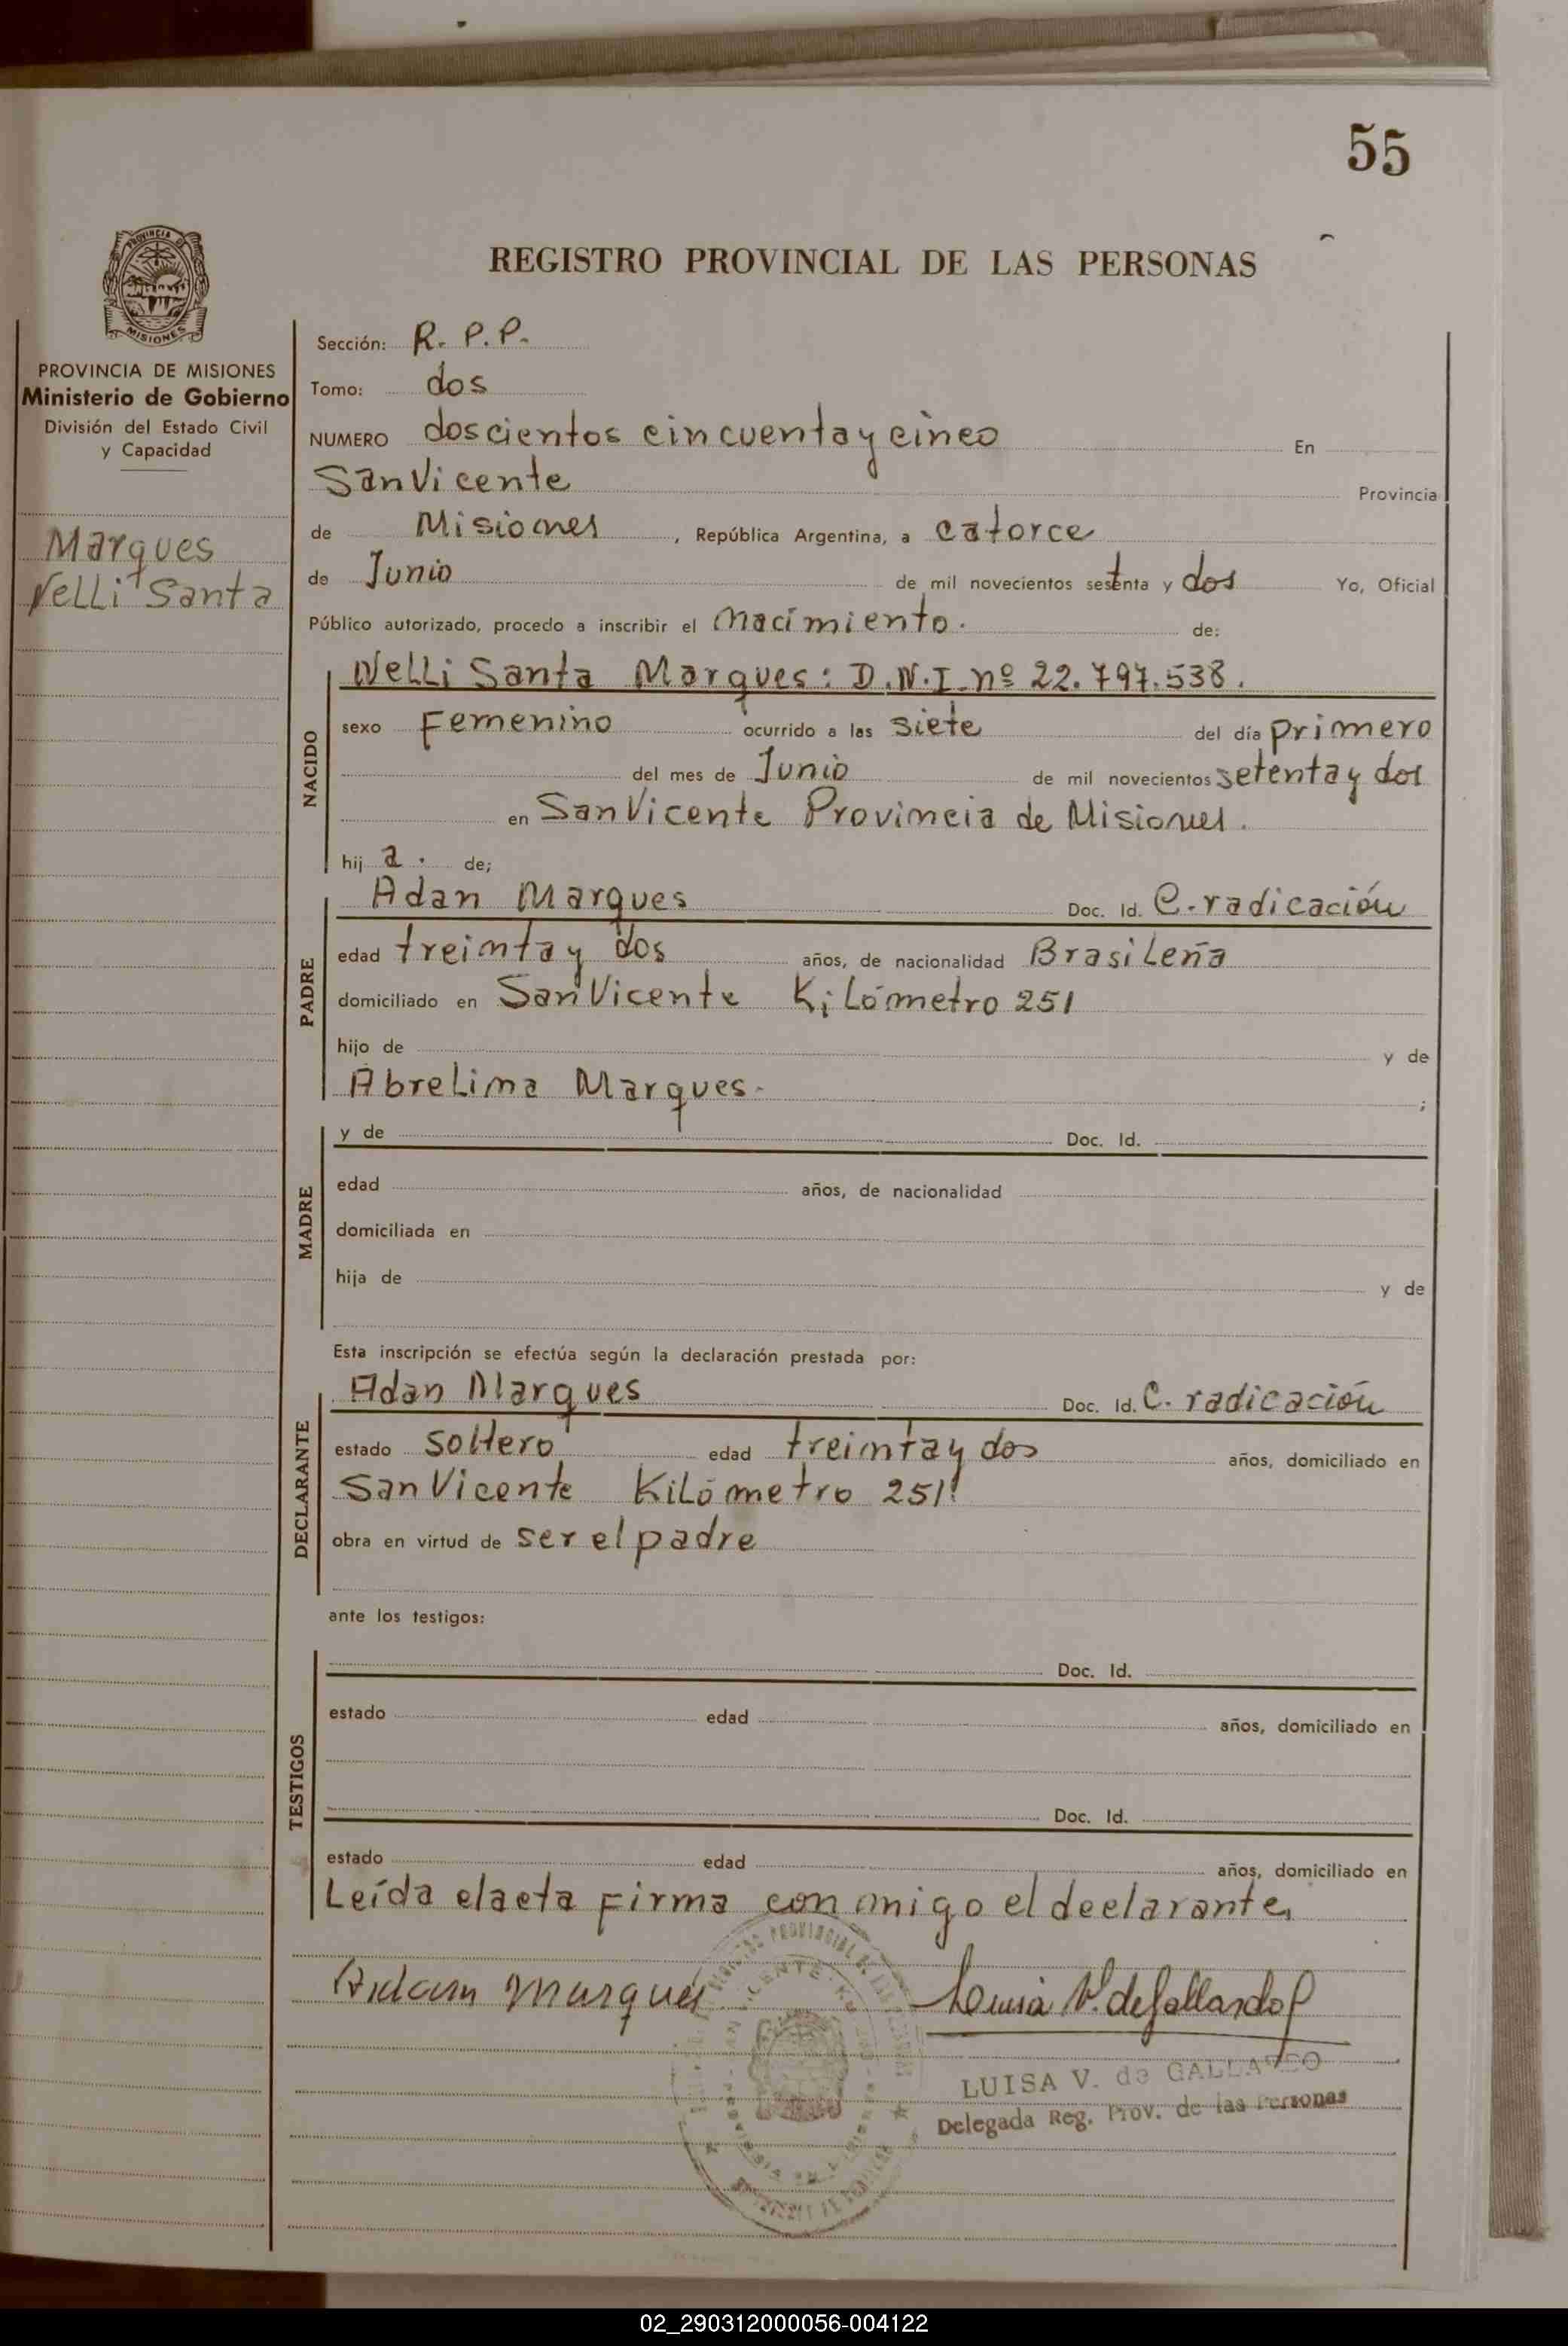 55
REGISTRO PROVINCIAL DE LAS PERSONAS
PROVINCIA DE
MISIONES
PROVINCIA DE MISIONES
Ministerio de Gobierno
División del Estado Civil
y Capacidad
Marques
Nelli Santa
Sección: R. P. P.
Tomo: dos
NUMERO doscientos cincuenta y cinco En
San Vicente Provincia
de Misiones, República Argentina, a catorce
de Junio de mil novecientos setenta y dos Yo, Oficial
Público autorizado, procedo a inscribir el nacimiento. de:
NACIDO
Nelli Santa Marques: D.N.I. nº 22.797.538.
sexo Femenino ocurrido a las siete del día primero
del mes de Junio de mil novecientos setenta y dos
en San Vicente Provincia de Misiones.
hij a. de;
PADRE
Adan Marques Doc. Id. C. radicación
edad treinta y dos años, de nacionalidad Brasileña
domiciliado en San Vicente Kilómetro 251
hijo de y de
Abrelina Marques- ;
MADRE
y de Doc. Id.
edad años, de nacionalidad
domiciliada en
hija de y de
Esta inscripción se efectúa según la declaración prestada por:
DECLARANTE
Adan Marques Doc. Id. C. radicación
estado soltero edad treinta y dos años, domiciliado en
San Vicente Kilómetro 251.
obra en virtud de ser el padre
ante los testigos:
TESTIGOS
Doc. Id.
estado edad años, domiciliado en
Doc. Id.
estado edad años, domiciliado en
Leída el acta firma con migo el declarante,
Adam Marques
Luisa V. de Gallardo
LUISA V. de GALLARDO
Delegada Reg. Prov. de las Personas
02_290312000056-004122